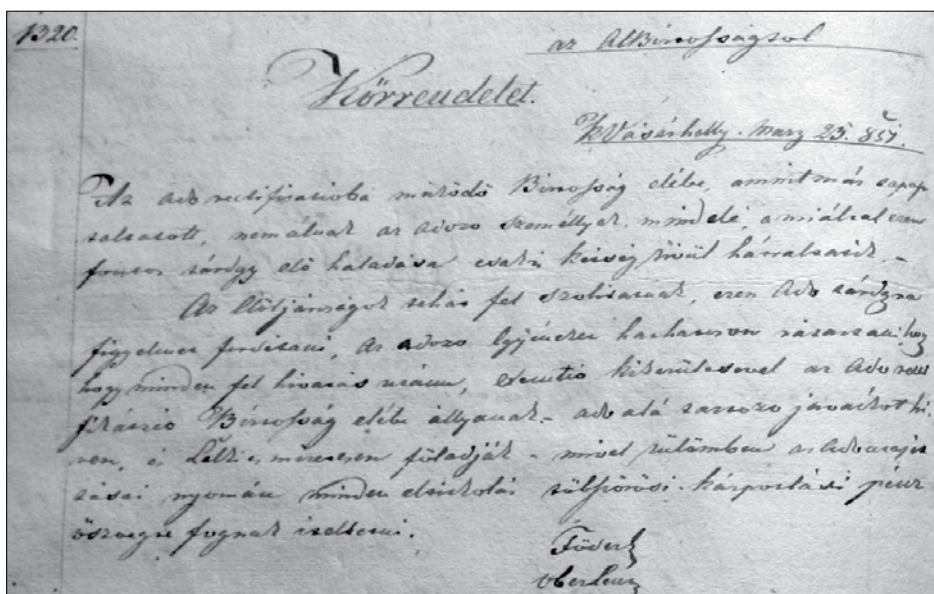 1320.
az AlBirosságtol
Körrendelet.
KVásárhelly. Marz 25. 851.
Az adó rectificatioba müködö Birosság elébe, amint már tapap
taltatott, nem álnak az adozo személlyek mind elé, a miáltal ezen
fontos tárdgy elö haladása csak kétség kivül hátraltatik. –
Az Elöljároságok tehát fel szolittatnak, ezen adó tárdgyra
figyelmet forditani, az adozo hathatoson
hogy minden fel hivatás utánn, executio kikerülésével az Adó recti
ficátzio Birosság elébe állyanak – adó alá tartozo javaikot hi
ven, és Lelki esméretesen föladják – mivel külömben az
nyomán minden eltitkolás pénz
öszvegre fognak itéltetni.
Födert
Oberleut